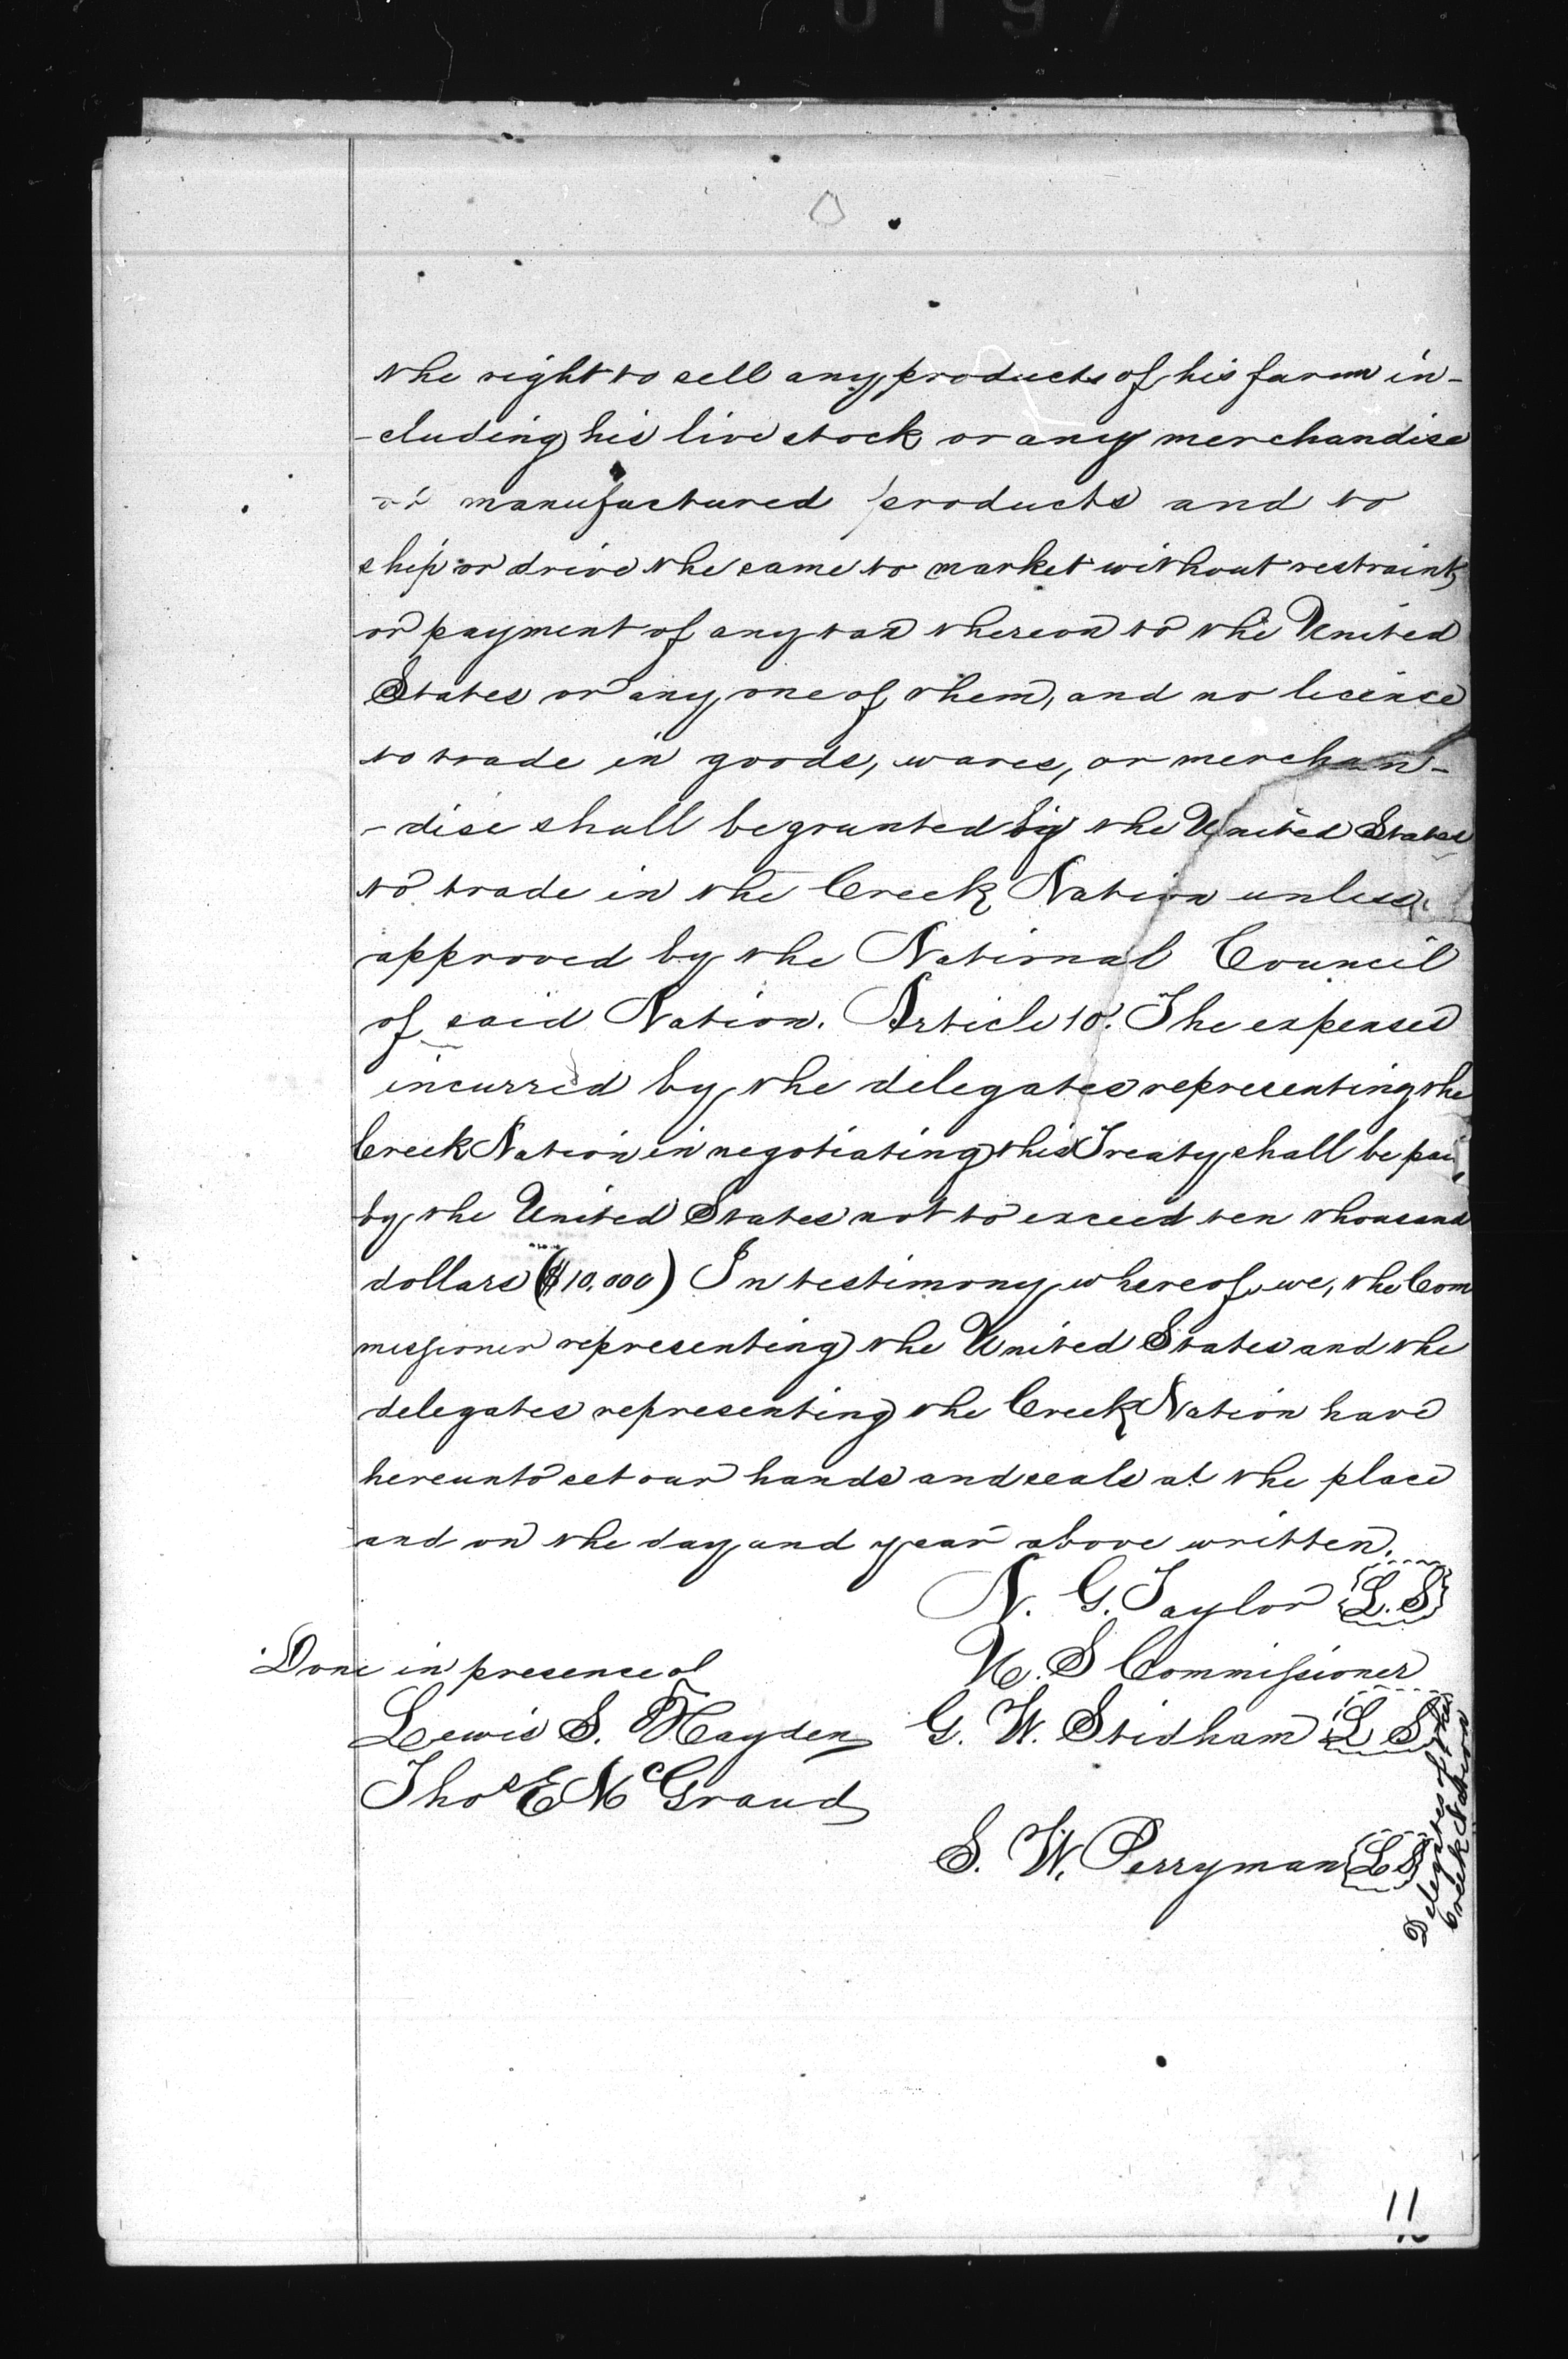 the right to sell any products of his farm in-
-cluding his live stock or any merchandise
or manufactured products and to
ship or drive the same to market without restraint,
or payment of any tax thereon to the United
States or any one of them, and no licence
to trade in goods, wares, or merchan-
-dise shall be granted by the United States
to trade in the Creek Nation unless
approved by the National Council
of said Nation. Article 10. The expenses
incurred by the delegates representing the
Creek Nation in negotiating this Treaty shall be pai
by the United States not to exceed ten thousand
dollars ($10,000) In testimony whereof, we, the Com
missioner representing the United States and the
delegates representing the Creek Nation have
hereunto set our hands and seals at the place
and on the day and year above written.
N. G. Taylor L.S
U. S Commissioner
Done in presence of
Lewis S. Hayden
G. W. Stidham L S
Thos E McGraud
S. W. Perryman L S
Delegates of the
Creek Nation
11